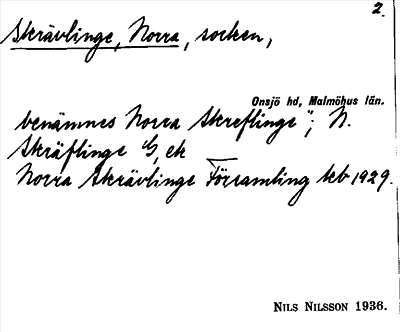 2.
Skrävlinge, Norra, socken,
Onsjö hd, Malmöhus län.
benämnes Norra Skreflinge"; N.
Skräflinge G, ek
Norra Skrävlinge Församling kb 1929.
NILS NILSSON 1936.